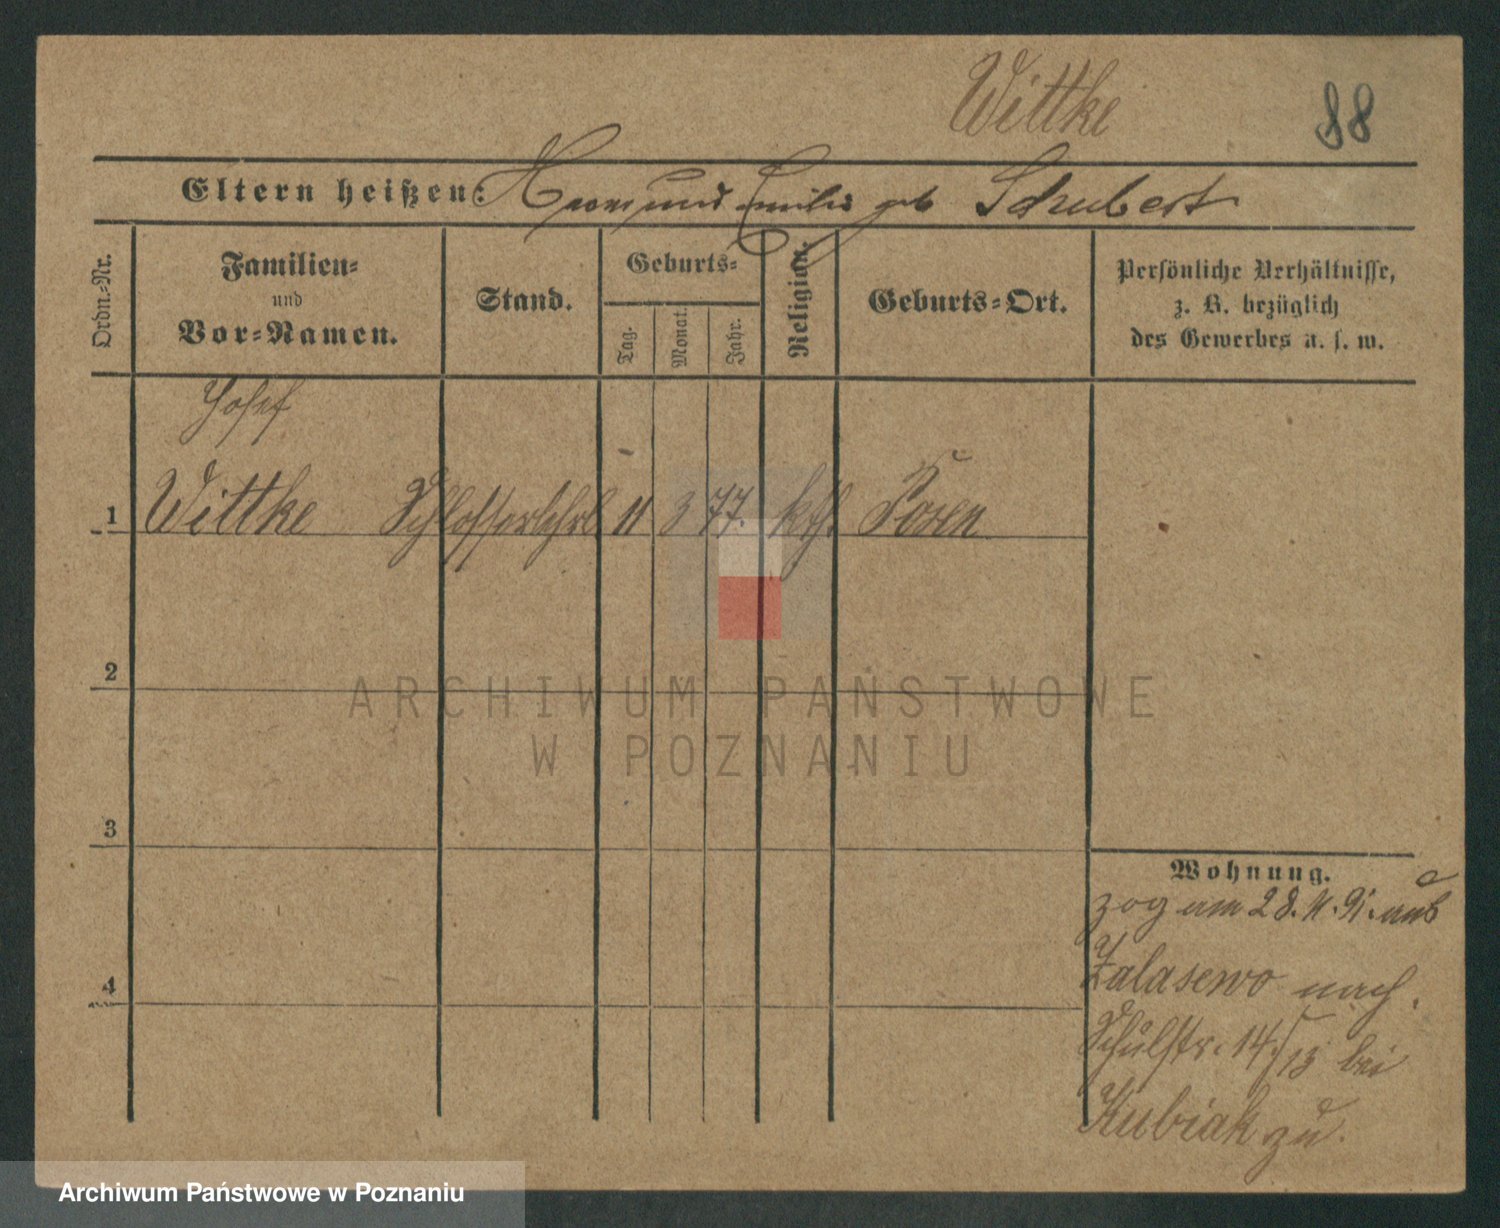 Wittke
88
Eltern heißen: und Emilie geb Schubert
Ordn.-Nr.
Familien-
und
Vor-Namen.
Stand.
Geburts-
Tag.
Monat.
Jahr.
Religion.
Geburts-Ort.
Persönliche Verhältnisse,
z. B. bezüglich
des Gewerbes u. s. w.
Josef
1 Wittke Schlosserlehrl 11 3 77. kth. Posen
2
3
4
Wohnung.
zog am 28. 4. 91. aus
Zalasewo nach
Schulstr. 14/15 bei
Kubiak zu.
ARCHIWUM PAŃSTWOWE
W POZNANIU
Archiwum Państwowe w Poznaniu